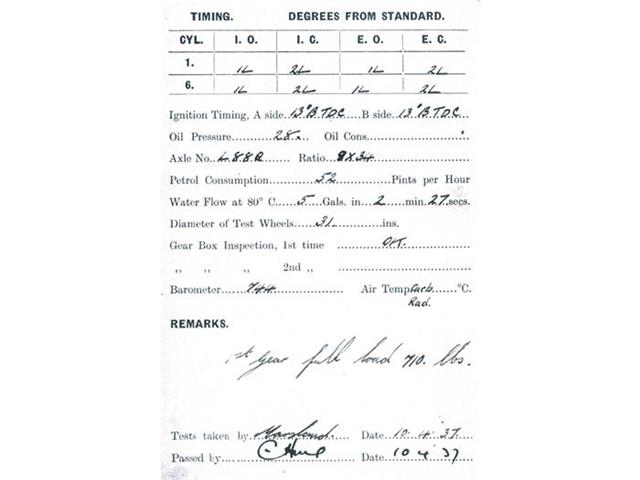 TIMING. DEGREES FROM STANDARD.
CYL. I. O. I. C. E. O. E. C.
1. 1L 2L 1L 2L
6. 1L 2L 1L 2L
Ignition Timing, A side 13° B TDC B side 13° B TDC
Oil Pressure 28. Oil Cons.
Axle No. L88Q Ratio 9X34
Petrol Consumption 52 Pints per Hour
Water Flow at 80° C. 5 Gals. in 2 min. 27 secs.
Diameter of Test Wheels 31 ins.
Gear Box Inspection, 1st time OK.
,, ,, ,, 2nd ,,
Barometer 744 Air Temp Carb. °C.
Rad.
REMARKS.
1st gear full load 710. lbs.
Tests taken by Date 10.4.37.
Passed by Date 10 4 37